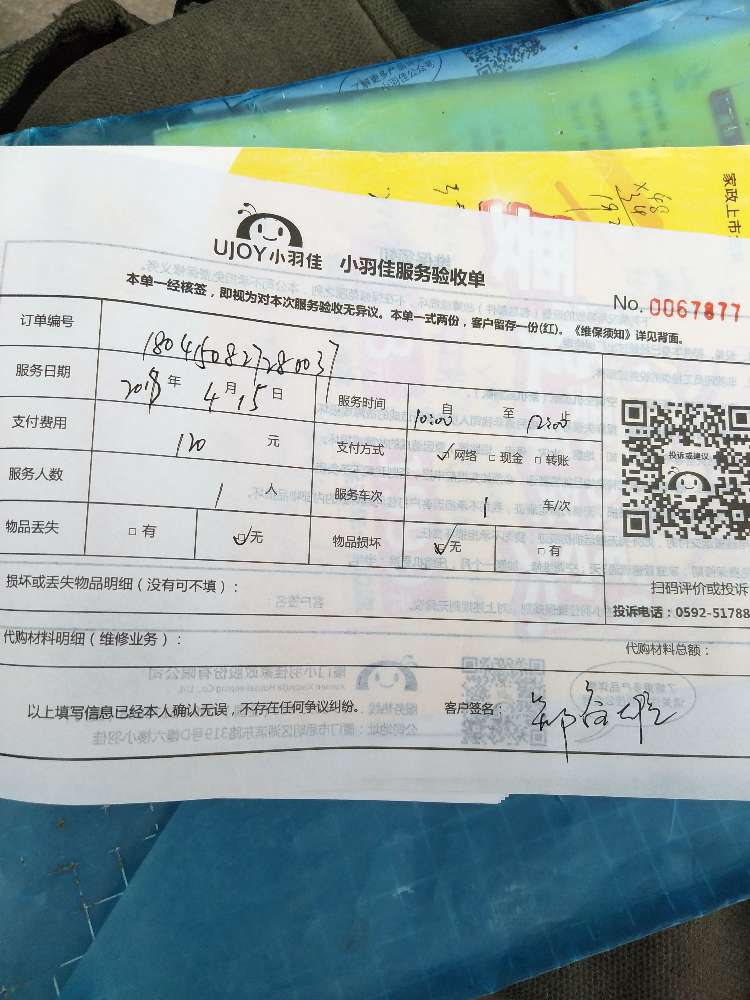 了解更多产品
小羽佳公众号
家政上市
UJOY小羽佳 小羽佳服务验收单
本单一经核签，即视为对本次服务验收无异议。本单一式两份，客户留存一份(红)。《维保须知》详见背面。
No. 0067877
订单编号 1804150827280037
服务日期 2018年4月15日 服务时间 自10:00至12:00止
支付费用 120元 支付方式 ☑网络 □现金 □转账
服务人数 1人 服务车次 1车/次
物品丢失 □有 ☑无 物品损坏 ☑无 □有
投诉或建议
扫码评价或投诉
投诉电话：0592-51788
损坏或丢失物品明细（没有可不填）：
代购材料明细（维修业务）： 代购材料总额：
以上填写信息已经本人确认无误，不存在任何争议纠纷。 客户签名：